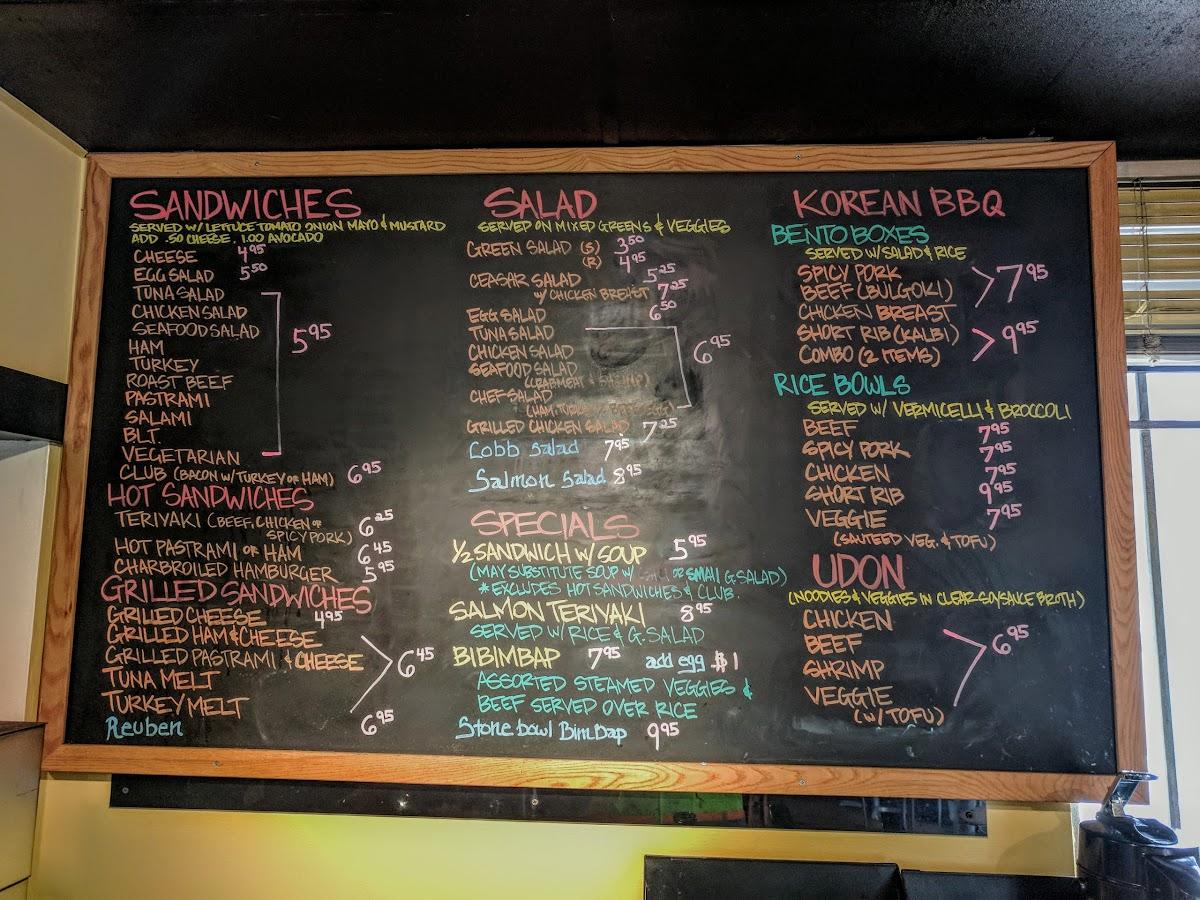 SANDWICHES
SERVED W/ LETTUCE TOMATO ONION MAYO & MUSTARD
ADD .50 CHEESE, 1.00 AVOCADO
CHEESE 4.95
EGG SALAD 5.50
TUNA SALAD
CHICKEN SALAD
SEAFOOD SALAD 5.95
HAM
TURKEY
ROAST BEEF
PASTRAMI
SALAMI
BLT.
VEGETARIAN
CLUB (BACON W/TURKEY OR HAM) 6.95
HOT SANDWICHES
TERIYAKI (BEEF, CHICKEN OR 6.25
SPICY PORK)
HOT PASTRAMI OR HAM 6.45
CHARBROILED HAMBURGER 5.95
GRILLED SANDWICHES
GRILLED CHEESE 4.95
GRILLED HAM & CHEESE
GRILLED PASTRAMI & CHEESE 6.45
TUNA MELT
TURKEY MELT
Reuben 6.95
SALAD
SERVED ON MIXED GREENS & VEGGIES
GREEN SALAD (S) 3.50
(R) 4.95
CEASAR SALAD 5.25
W/ CHICKEN BREAST 7.25
EGG SALAD 6.50
TUNA SALAD
CHICKEN SALAD 6.95
SEAFOOD SALAD
(CRABMEAT & SHRIMP)
CHEF SALAD
(HAM, TURKEY
GRILLED CHICKEN SALAD 7.25
Cobb Salad 7.95
Salmon Salad 8.95
SPECIALS
1/2 SANDWICH W/ SOUP 5.95
(MAY SUBSTITUTE SOUP W/ OR SMALL G.SALAD)
* EXCLUDES HOT SANDWICHES & CLUB.
SALMON TERIYAKI 8.95
SERVED W/ RICE & G. SALAD
BIBIMBAP 7.95 add egg $1
ASSORTED STEAMED VEGGIES &
BEEF SERVED OVER RICE
Stone bowl BimBap 9.95
KOREAN BBQ
BENTO BOXES
SERVED W/SALAD & RICE
SPICY PORK
BEEF (BULGOKI) 7.95
CHICKEN BREAST
SHORT RIB (KALBI) 9.95
COMBO (2 ITEMS)
RICE BOWLS
SERVED W/ VERMICELLI & BROCCOLI
BEEF 7.95
SPICY PORK 7.95
CHICKEN 7.95
SHORT RIB 9.95
VEGGIE 7.95
(SAUTEED VEG. & TOFU)
UDON
(NOODLES & VEGGIES IN CLEAR SOYSAUCE BROTH)
CHICKEN
BEEF 6.95
SHRIMP
VEGGIE
(W/ TOFU)